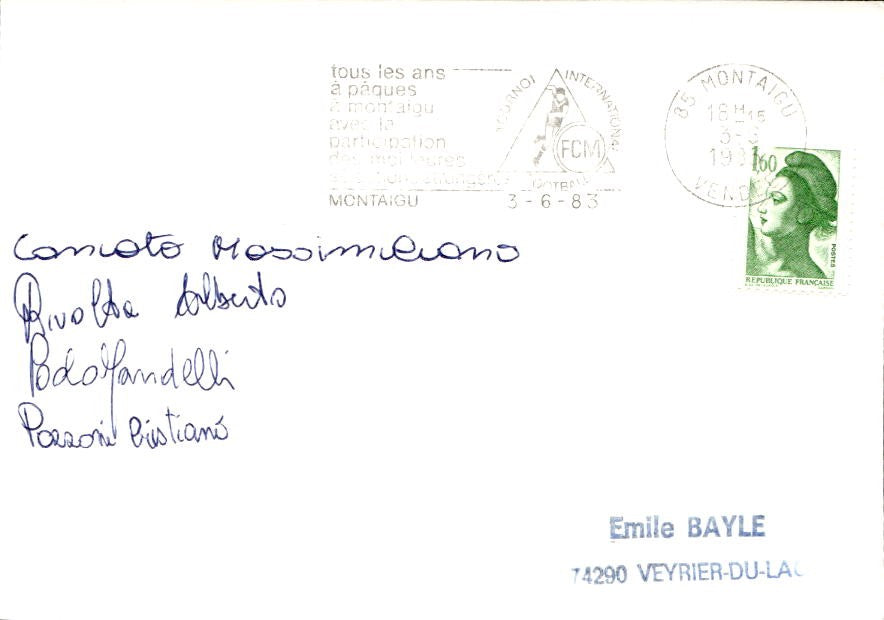 tous les ans
à pâques
à montaigu
avec la
participation
des meilleures
MONTAIGU
TOURNOI INTERNATIONAL
FCM
FOOTBALL
3-6-83
85 MONTAIGU
18H15
3-6
VENDEE
1,60
POSTES
REPUBLIQUE FRANÇAISE
Massimiliano
Rivolta Alberto
Cristiano
Emile BAYLE
74290 VEYRIER-DU-LAC